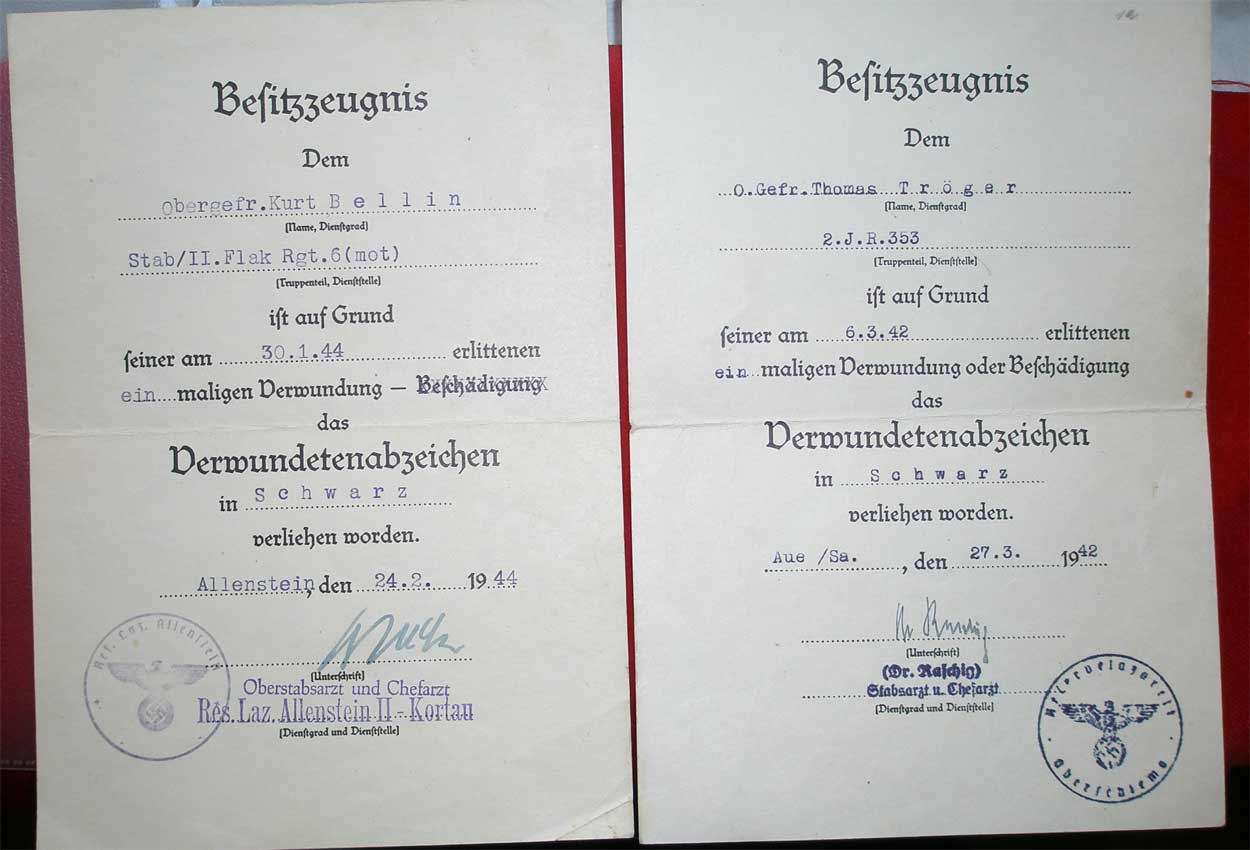 Besitzzeugnis
Dem
Obergefr.Kurt Bellin
(Name, Dienstgrad)
Stab/II.Flak Rgt.6(mot)
(Truppenteil, Dienststelle)
ist auf Grund
seiner am 30.1.44 erlittenen
ein maligen Verwundung — Beschädigung
das
Verwundetenabzeichen
in Schwarz
verliehen worden.
Allenstein, den 24.2. 1944
(Unterschrift)
Oberstabsarzt und Chefarzt
Res. Laz. Allenstein II - Kortau
(Dienstgrad und Dienststelle)
Res. Laz. Allenstein
Besitzzeugnis
Dem
O.Gefr.Thomas Tröger
(Name, Dienstgrad)
2.J.R.353
(Truppenteil, Dienststelle)
ist auf Grund
seiner am 6.3.42 erlittenen
ein maligen Verwundung oder Beschädigung
das
Verwundetenabzeichen
in Schwarz
verliehen worden.
Aue /Sa. , den 27.3. 1942
(Unterschrift)
(Dr. Raschig)
Stabsarzt u. Chefarzt
(Dienstgrad und Dienststelle)
Reservelazarett
Oberschlema